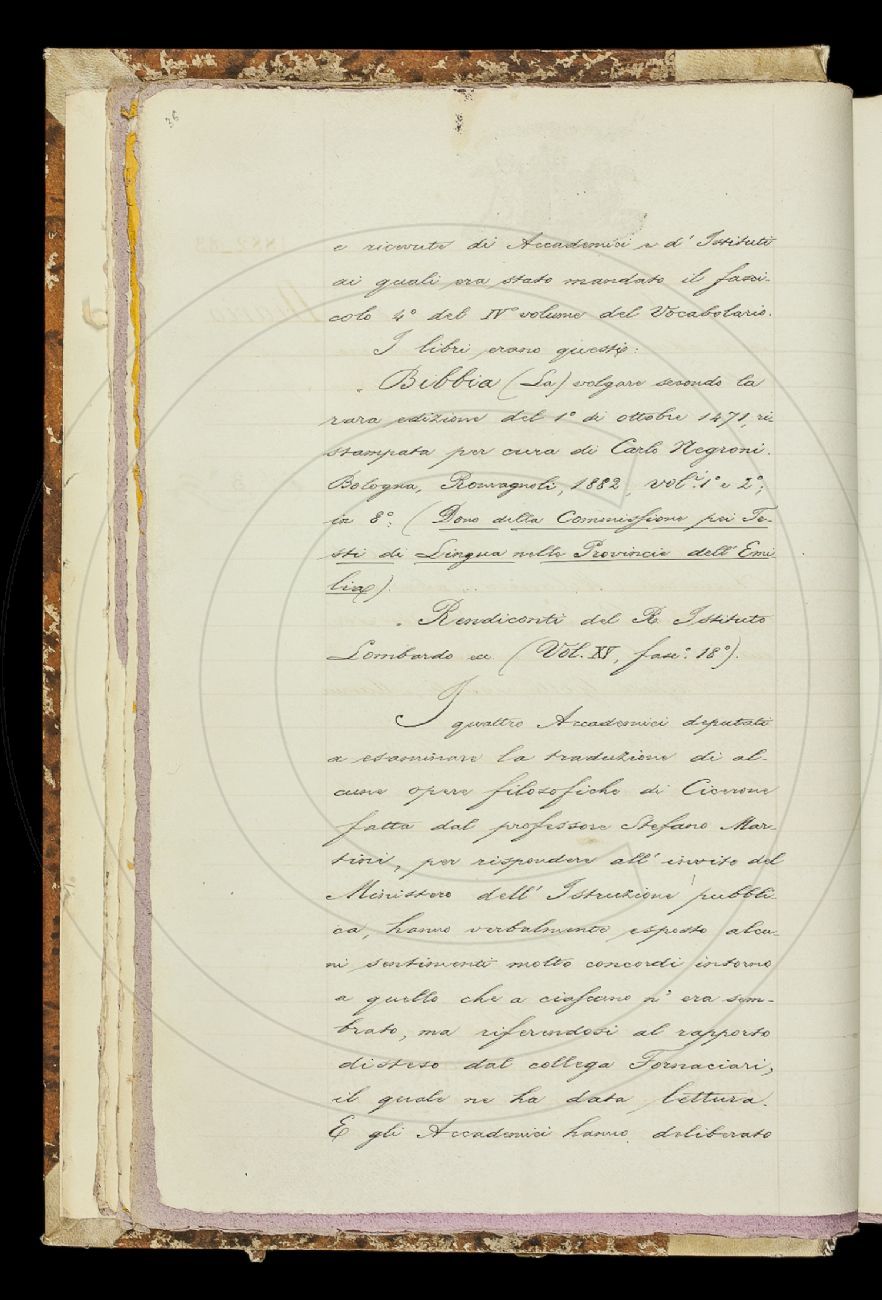 36
e ricevute di Accademici e d' Istituti
ai quali era stato mandato il fasci-
colo 4° del IV° volume del Vocabolario.
I libri erano questi:
Bibbia (La) volgare secondo la
rara edizione del 1° di ottobre 1471, ri-
stampata per cura di Carlo Negroni.
Bologna, Romagnoli, 1882, vol.i 1° e 2°,
in 8°; (Dono della Commissione pei Te-
sti di Lingua nelle Provincie dell' Emi
lia).
Rendiconti del R. Istituto
Lombardo ec (Vol. XV, fasc.° 18°).
I quattro Accademici deputati
a esaminare la traduzione di al-
cune opere filosofiche di Cicerone
fatta dal professore Stefano Mar-
tini, per rispondere all' invito del
Ministero dell' Istruzione pubbli-
ca, hanno verbalmente esposto alcu-
ni sentimenti molto concordi intorno
a quello che a ciascuno n' era sem-
brato, ma riferendosi al rapporto
disteso dal collega Fornaciari,
il quale ne ha data lettura.
E gli Accademici hanno deliberato